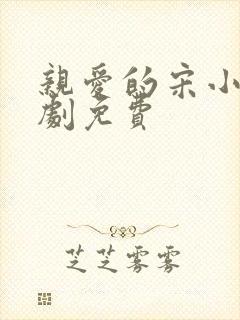 親愛的宋小
劇免費
芝芝雾雾